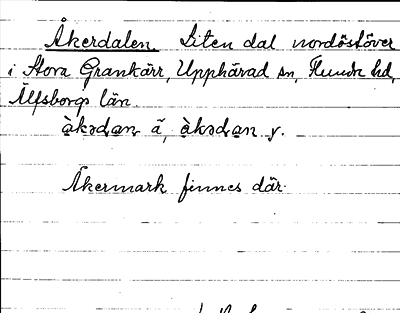 Åkerdalen. Liten dal nordöstöver
i Stora Grankärr, Upphärad sn, Flundre hd,
Älfsborgs län
àkədan ä, àkədan y.
Åkermark finnes där.